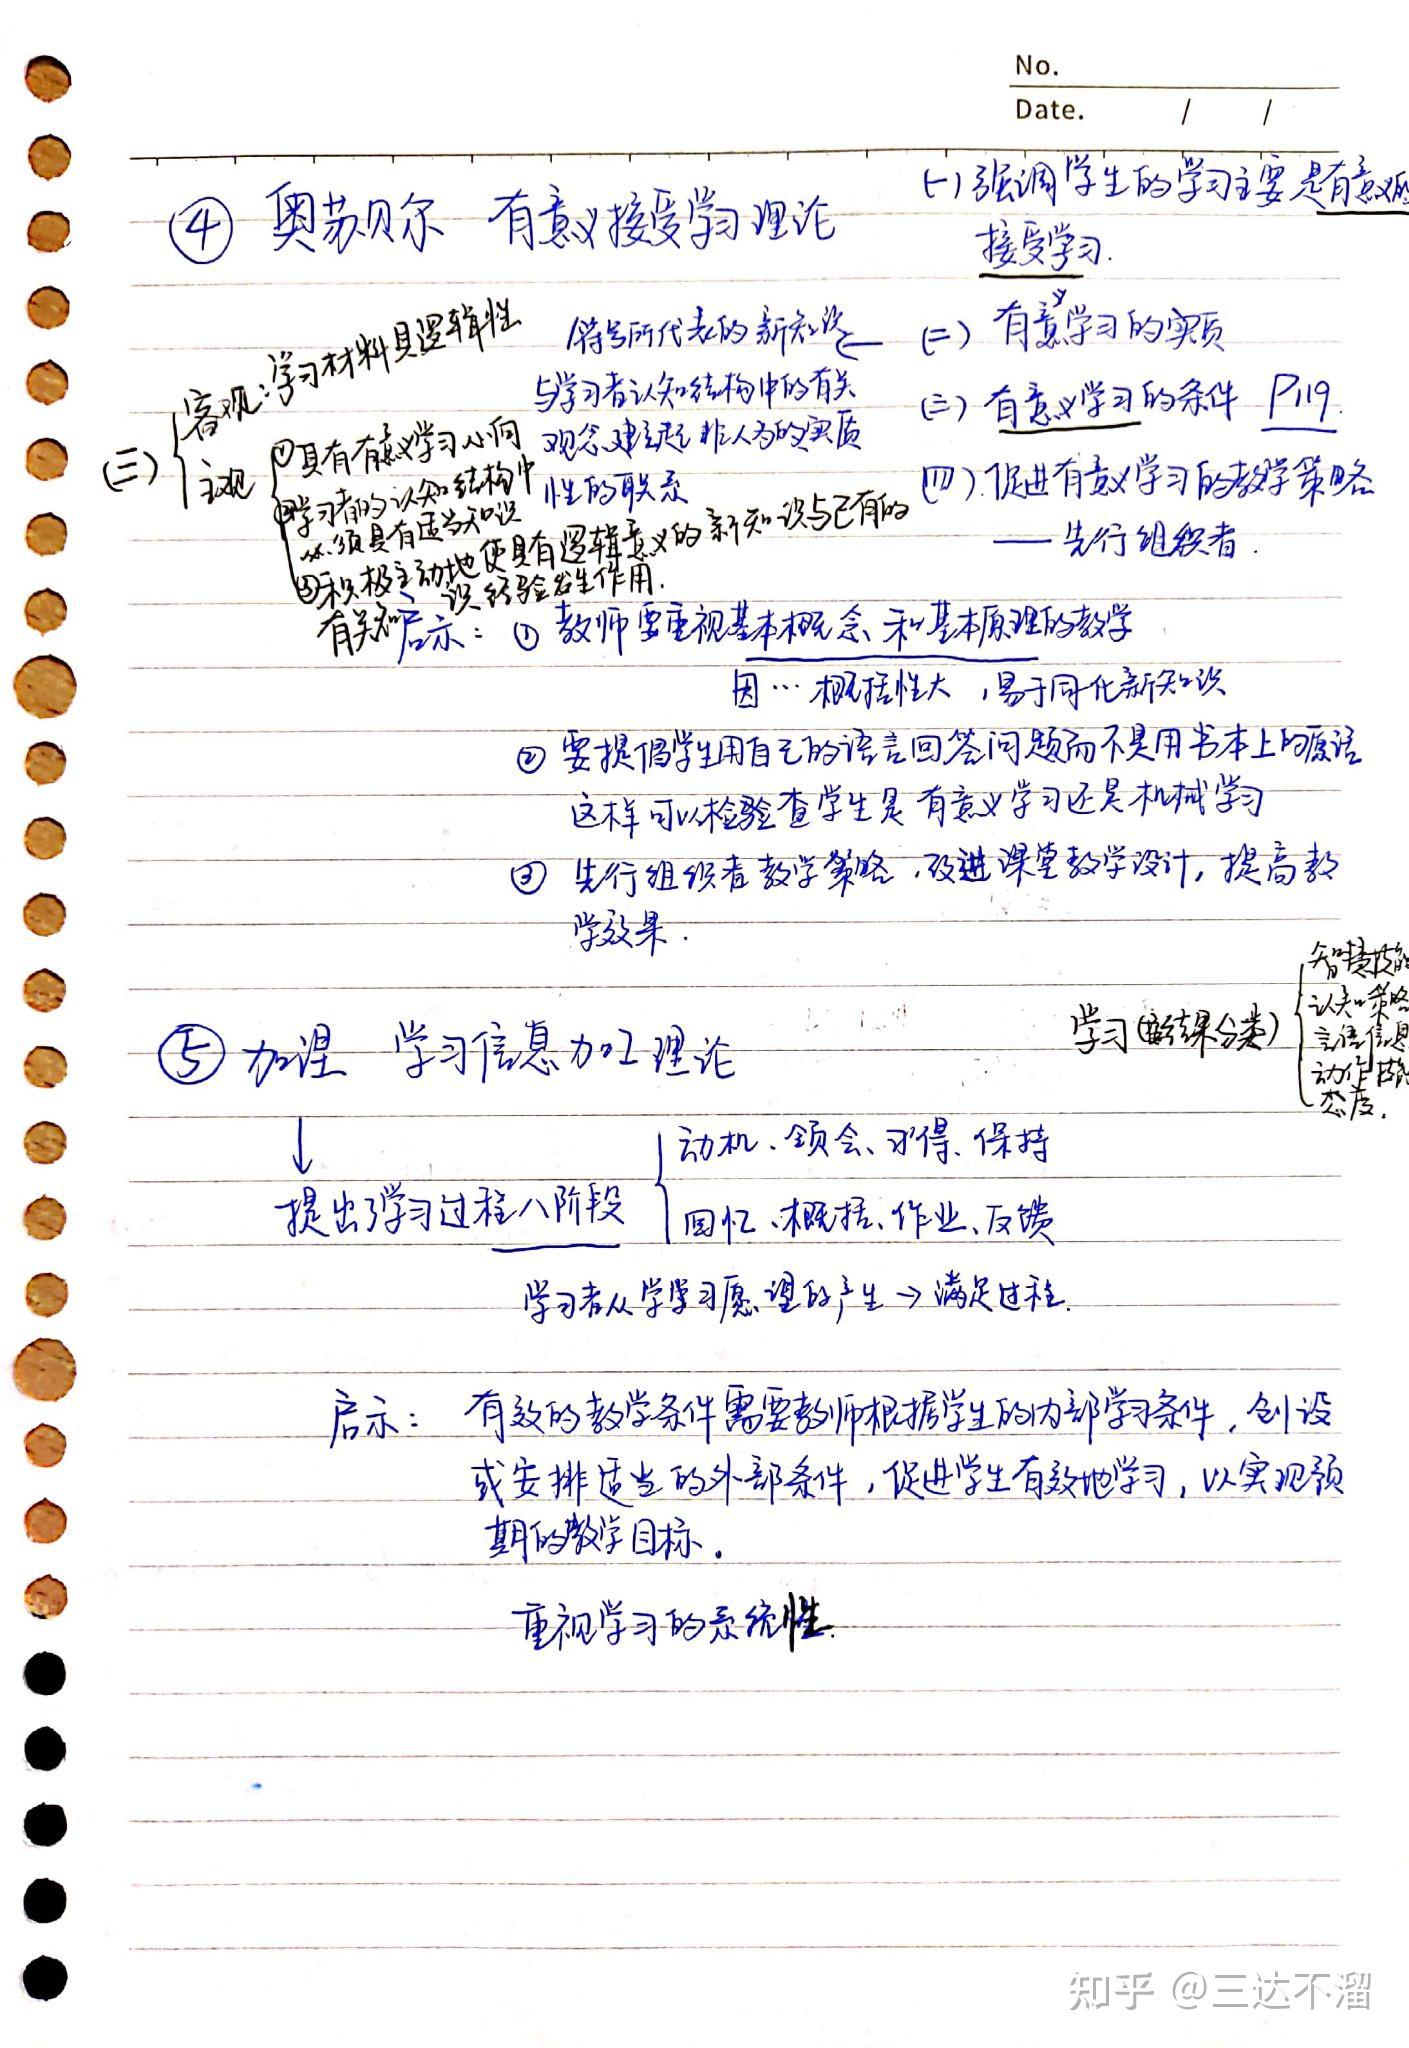 No.
Date. / /
④ 奥苏贝尔 有意义接受学习理论
(一) 强调学生的学习主要是有意义的
接受学习.
(二) 有意义学习的实质
符号所代表的新知识
与学习者认知结构中的有关
观念建立起非人为的实质
性的联系
(三) 有意义学习的条件 P119.
(四). 促进有意义学习的教学策略
—— 先行组织者.
(三)
客观: 学习材料具逻辑性
主观
①具有有意义学习心向
②学习者的认知结构中
必须具有适当知识
③积极主动地使具有逻辑意义的新知识与已有的
有关知识经验发生作用.
启示: ① 教师要重视基本概念和基本原理的教学
因…概括性大,易于同化新知识
② 要提倡学生用自己的语言回答问题而不是用书本上的原话
这样可以检验查学生是有意义学习还是机械学习
③ 先行组织者教学策略,改进课堂教学设计,提高教
学效果.
⑤ 加涅 学习信息加工理论
学习(结果分类)
智慧技能
认知策略
言语信息
动作技能
态度.
↓
提出了学习过程八阶段
动机、领会、习得、保持
回忆、概括、作业、反馈
学习者从学学习愿望的产生→满足过程.
启示: 有效的教学条件需要教师根据学生的内部学习条件,创设
或安排适当的外部条件,促进学生有效地学习,以实现预
期的教学目标.
重视学习的系统性.
知乎 @三达不溜